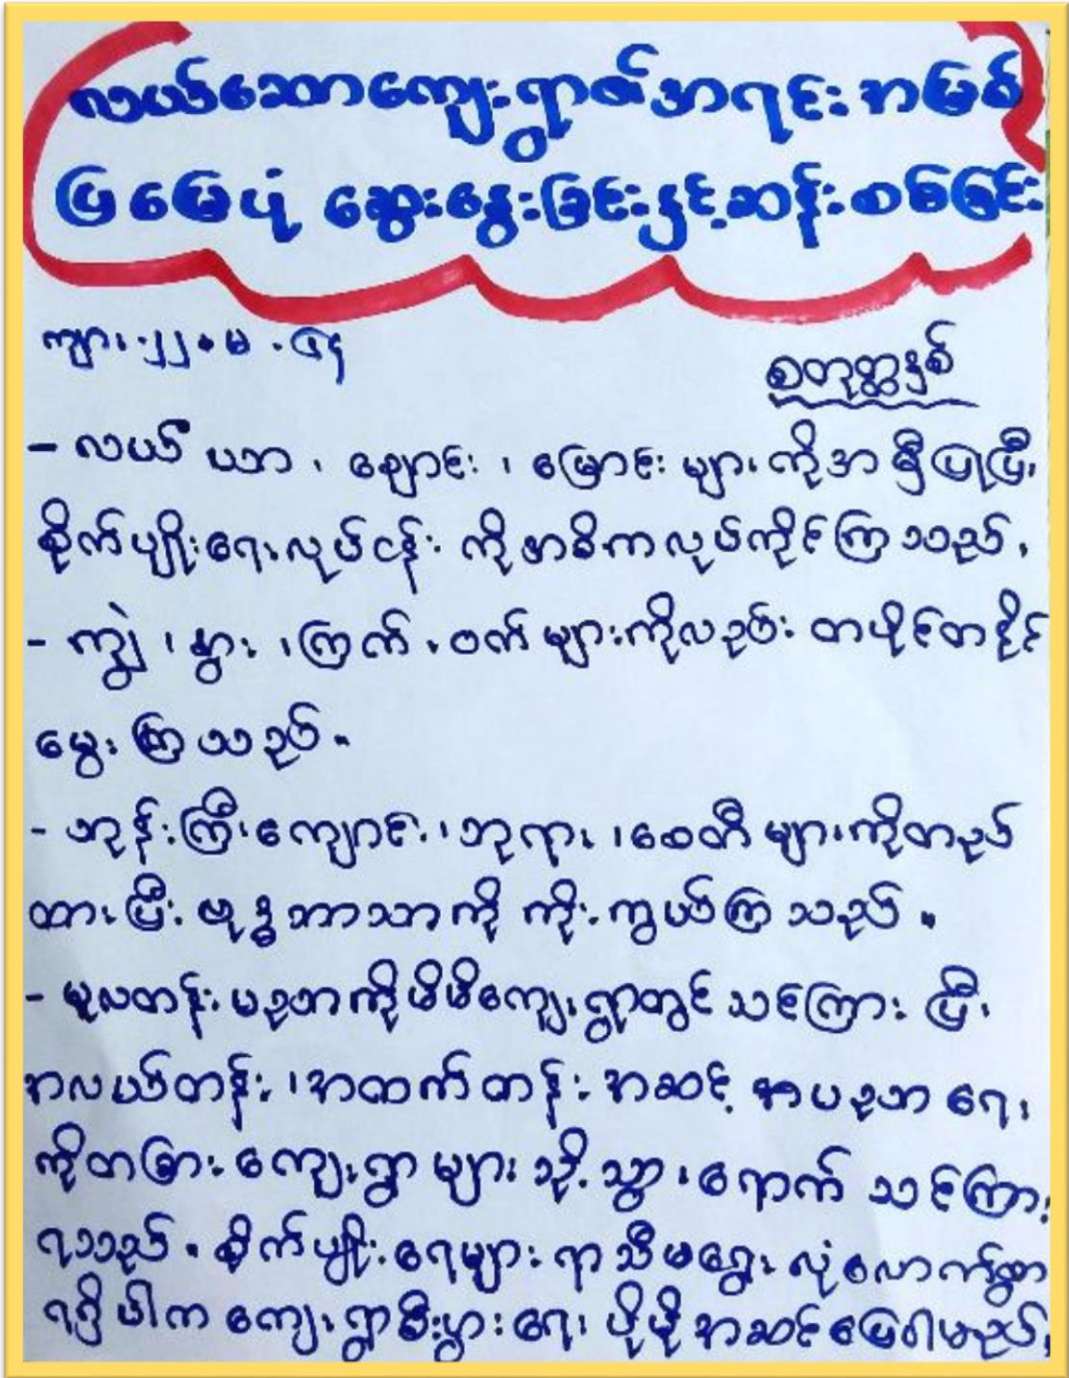 လယ်ဆောကျေးရွာ၏အရင်းအမြစ်
ပြမြေပုံ ဆွေးနွေးခြင်းနှင့်ဆန်းစစ်ခြင်း
ကျား-၂၂၊ မ-၄၄
စုတုတ္ထနှစ်
- လယ် ယာ ၊ ချောင်း ၊ မြောင်း များကိုအမှီပြုပြီး
စိုက်ပျိုးရေးလုပ်ငန်း ကိုအဓိကလုပ်ကိုင်ကြသည်။
- ကျွဲ ၊ နွား ၊ ကြက် ၊ ဝက် များကိုလည်း တပိုင်တနိုင်
မွေးကြသည်။
- ဘုန်းကြီးကျောင်း ၊ ဘုရား ၊ စေတီ များကိုတည်
ထားပြီး ဗုဒ္ဓဘာသာကို ကိုးကွယ်ကြသည်။
- မူလတန်းပညာကိုမိမိကျေးရွာတွင် သင်ကြားပြီး
အလယ်တန်း ၊ အထက်တန်း အဆင့် အပညာရေး
ကိုတခြားကျေးရွာများသို့သွားရောက် သင်ကြား
ရသည်။ စိုက်ပျိုးရေများ ရာသီမရွေး လုံလောက်စွာ
ရရှိပါက ကျေးရွာစီးပွားရေး ပိုမိုအဆင်ပြေပါမည်။